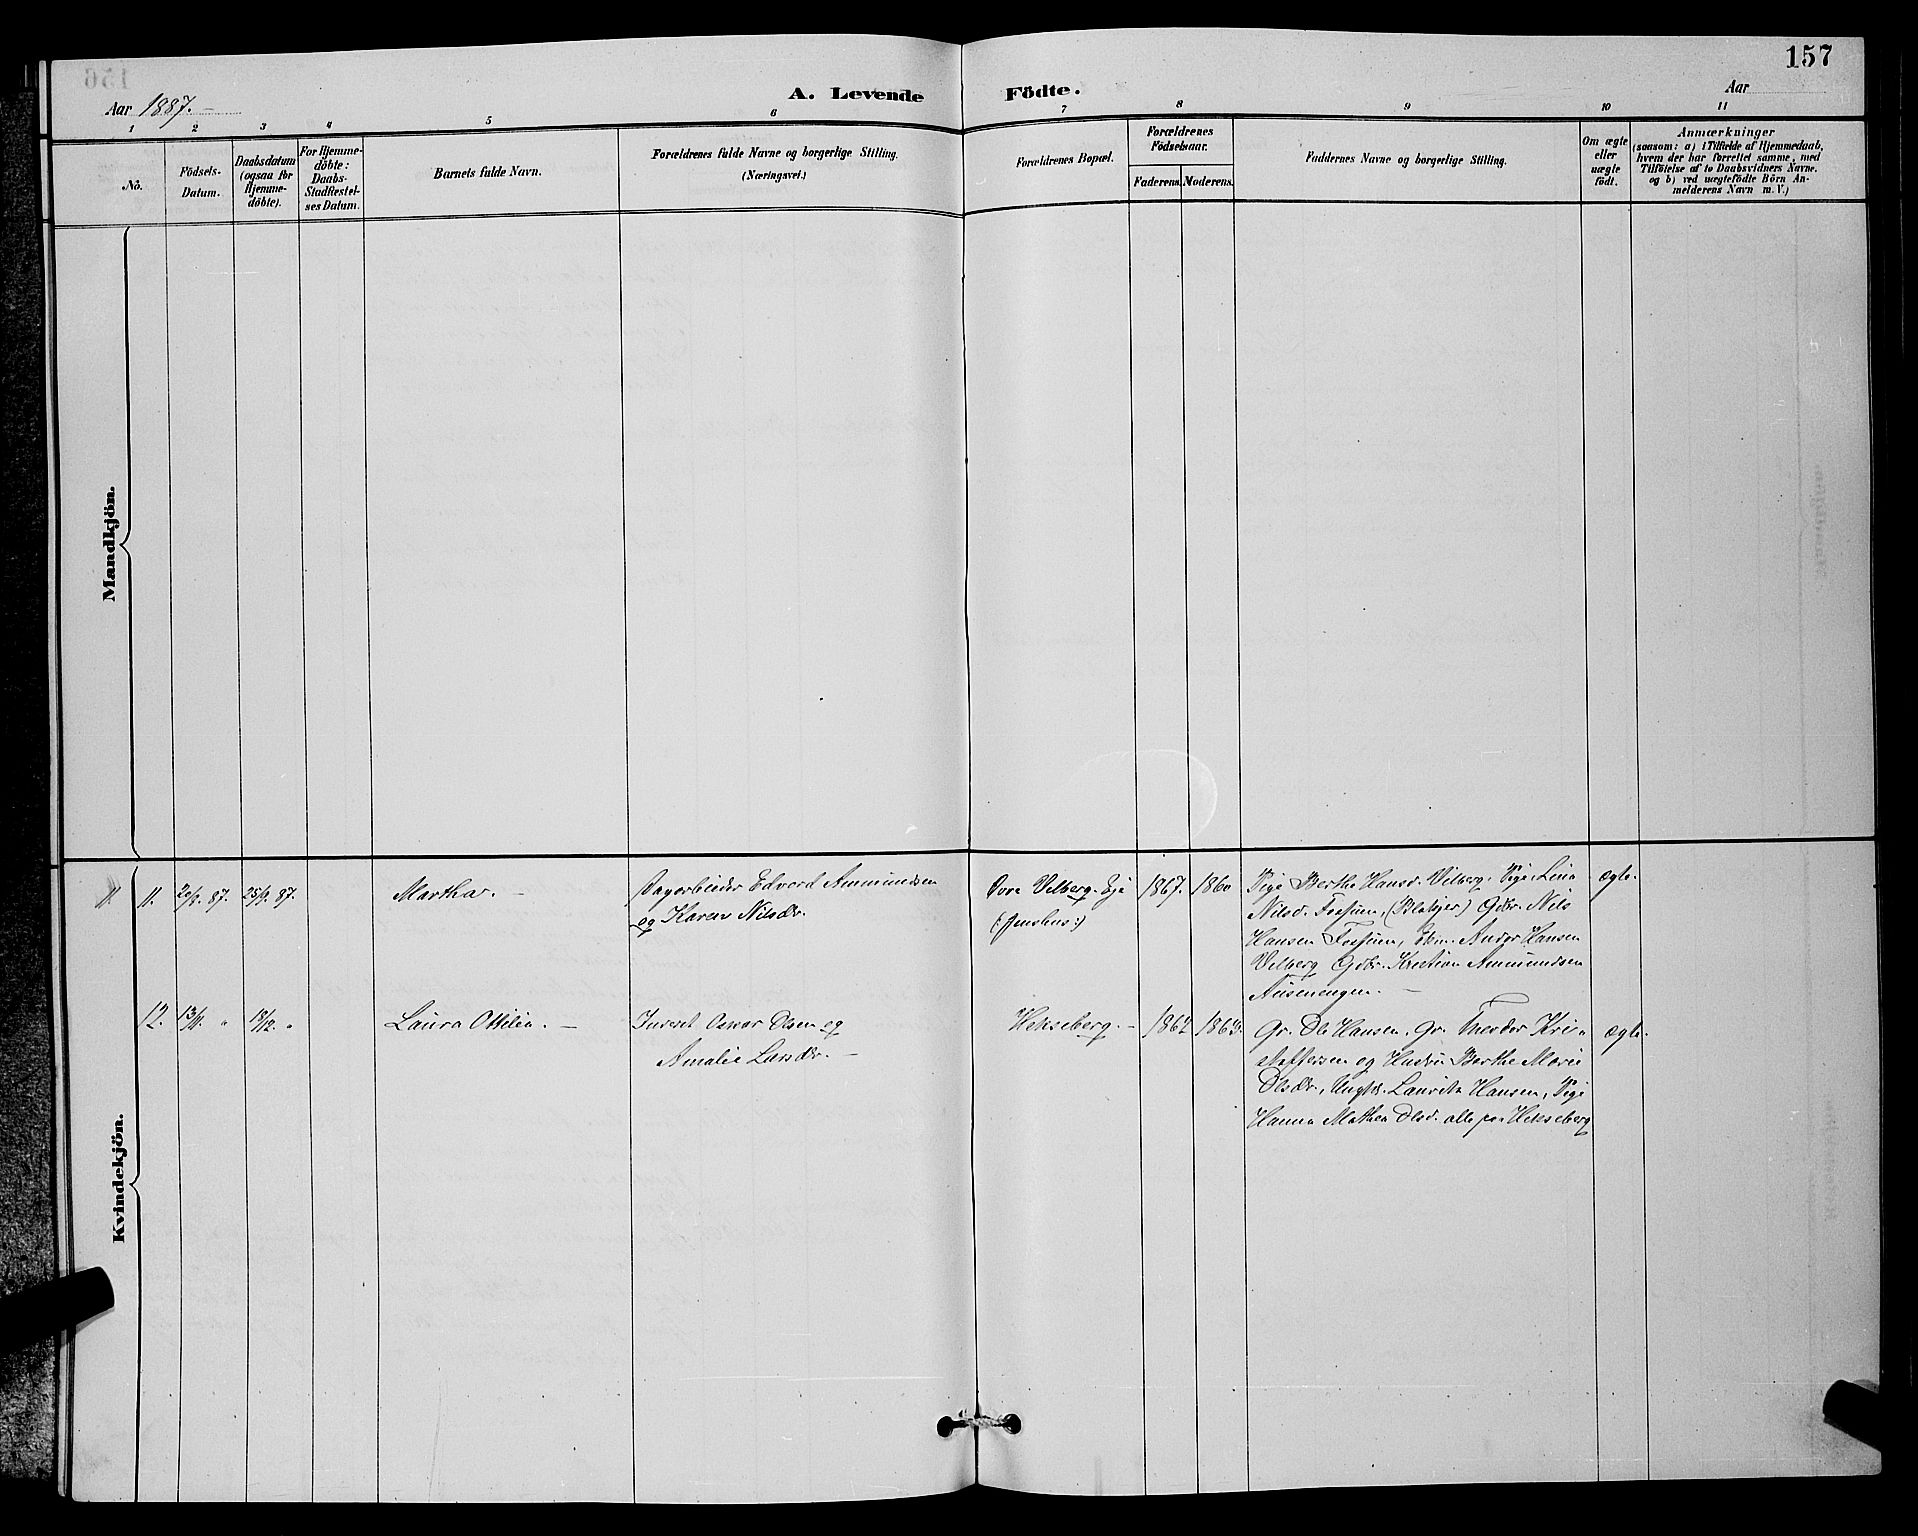 157
Aar 1887. A. Levende Födte. Aar
1 2 3 4 5 6 7 8 9 10 11
No.
Födsels-Datum.
Daabsdatum (ogsaa for Hjemme-döbte).
For Hjemme-döbte: Daabs-Stadfestel-ses Datum.
Barnets fulde Navn.
Forældrenes fulde Navne og borgerlige Stilling.
(Næringsvei.)
Forældrenes Bopæl.
Forældrenes Födselsaar.
Faderens. Moderens.
Faddernes Navne og borgerlige Stilling.
Om ægte eller uægte födt.
Anmærkninger
(saasom: a) i Tilfælde af Hjemmedaab,
hvem der har forrettet samme, med
Tilföielse af to Daabsvidners Navne.
og b) ved uægtefödte Börn An-
melderens Navn m. V.)
Mandkjön.
Kvindekjön.
11. 11. 20/9. 87. 25/9. 87. Martha. Dagarbeider Edvard Ammundsen
og Karen Nilsdr.
Ovre Velberg. Eje
(: Jenshus:)
1867. 1860
Pige Berthe Hansd. Vilberg. Pige Lina
Nilsd. Fossum, (Blakjer) Gdbr. Nils
Hansen Fossum, Andor Hansen
Velberg Gdbr. Kristian Ammundsen
Ausenengen.
ægte.
12. 13/11. " 18/12. " Laura Ottilia. Inderst Oscar Olsen og
Amalie Larsdr.
Hekseberg. 1862 1863.
Gr. Ole Hansen. Gr. Theodor Kri-
stoffersen og Hustru Berthe Marie
Olsdr., Ungk. Lauritz Hansen, Pige
Hanna Mathea Olsd. alle paa Hekseberg
ægte.